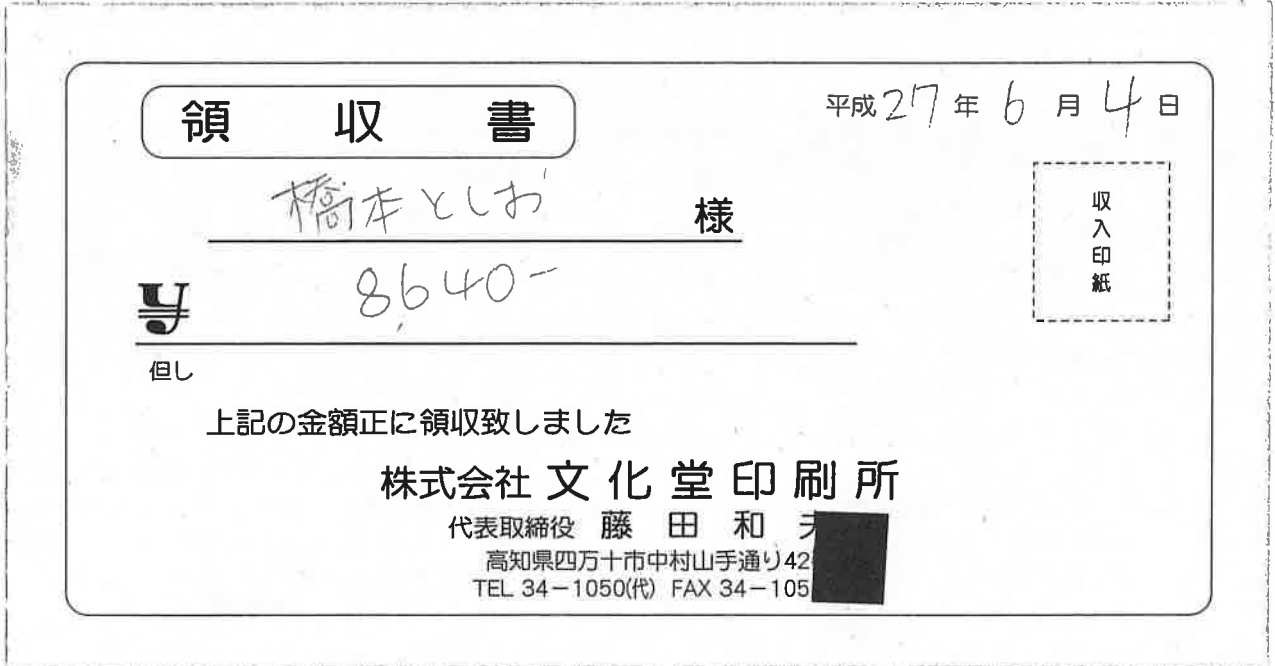 領収書
平成27年6月4日
橋本としお 様
収入印紙
¥ 8,640-
但し
上記の金額正に領収致しました
株式会社 文化堂印刷所
代表取締役 藤田和夫
高知県四万十市中村山手通り42
TEL 34-1050(代) FAX 34-105